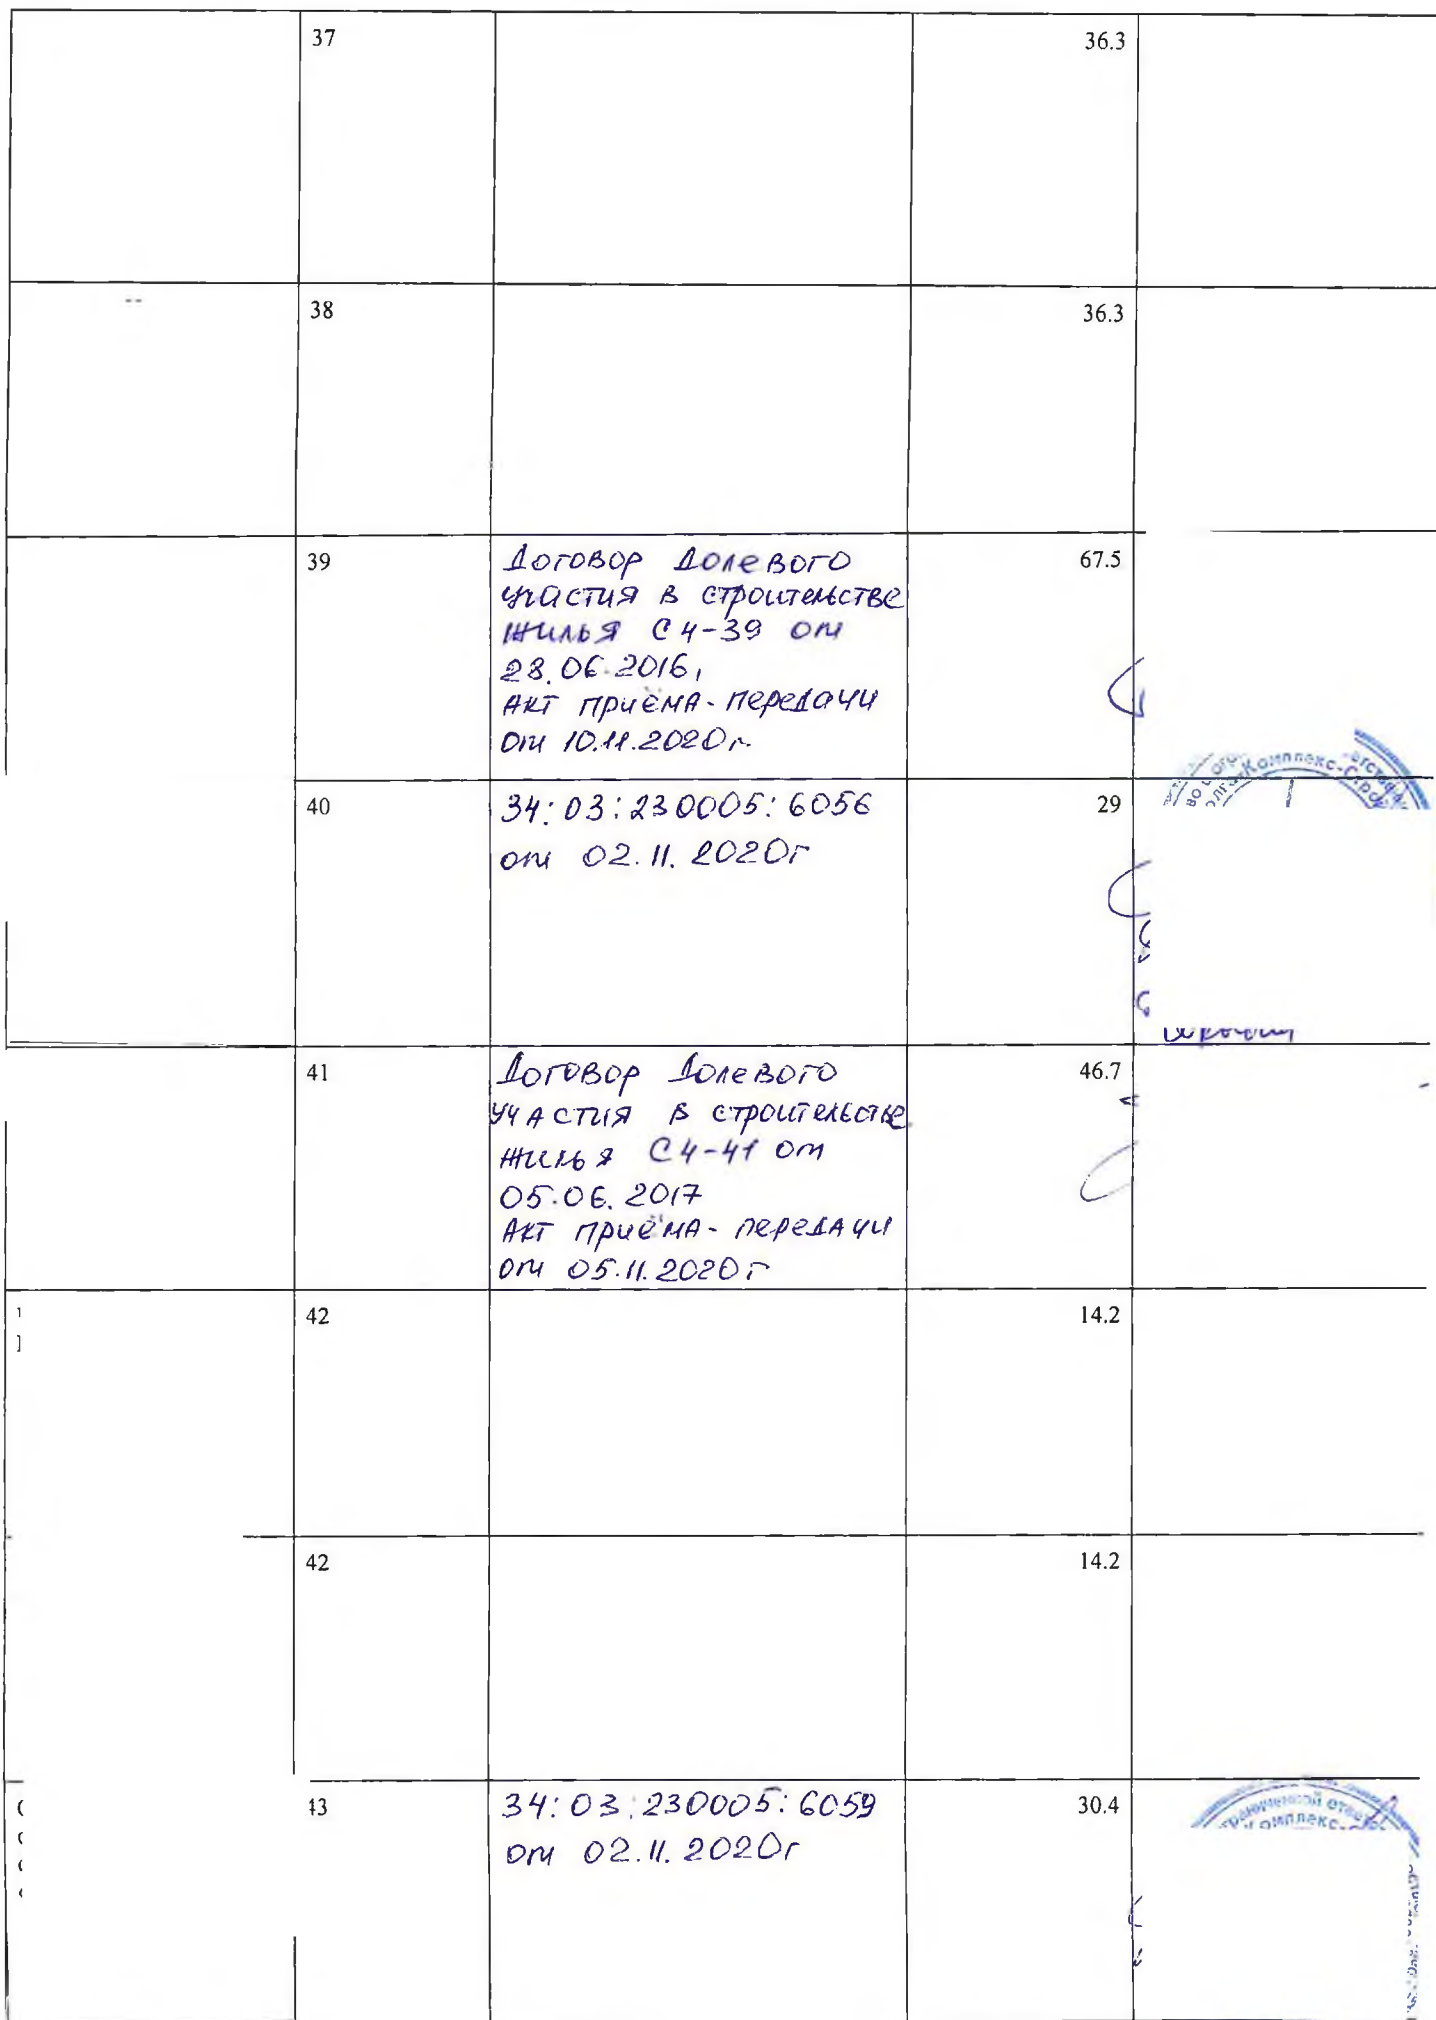 37
36.3
38
36.3
39
Договор долевого
участия в строительстве
жилья С4-39 от
28.06.2016,
Акт приёма-передачи
от 10.11.2020г.
67.5
Комплекс-Стро
40
34:03:230005:6056
от 02.11.2020г
29
41
Договор долевого
участия в строительстве
жилья С4-41 от
05.06.2017
Акт приёма-передачи
от 05.11.2020г
46.7
42
14.2
42
14.2
43
34:03:230005:6059
от 02.11.2020г
30.4